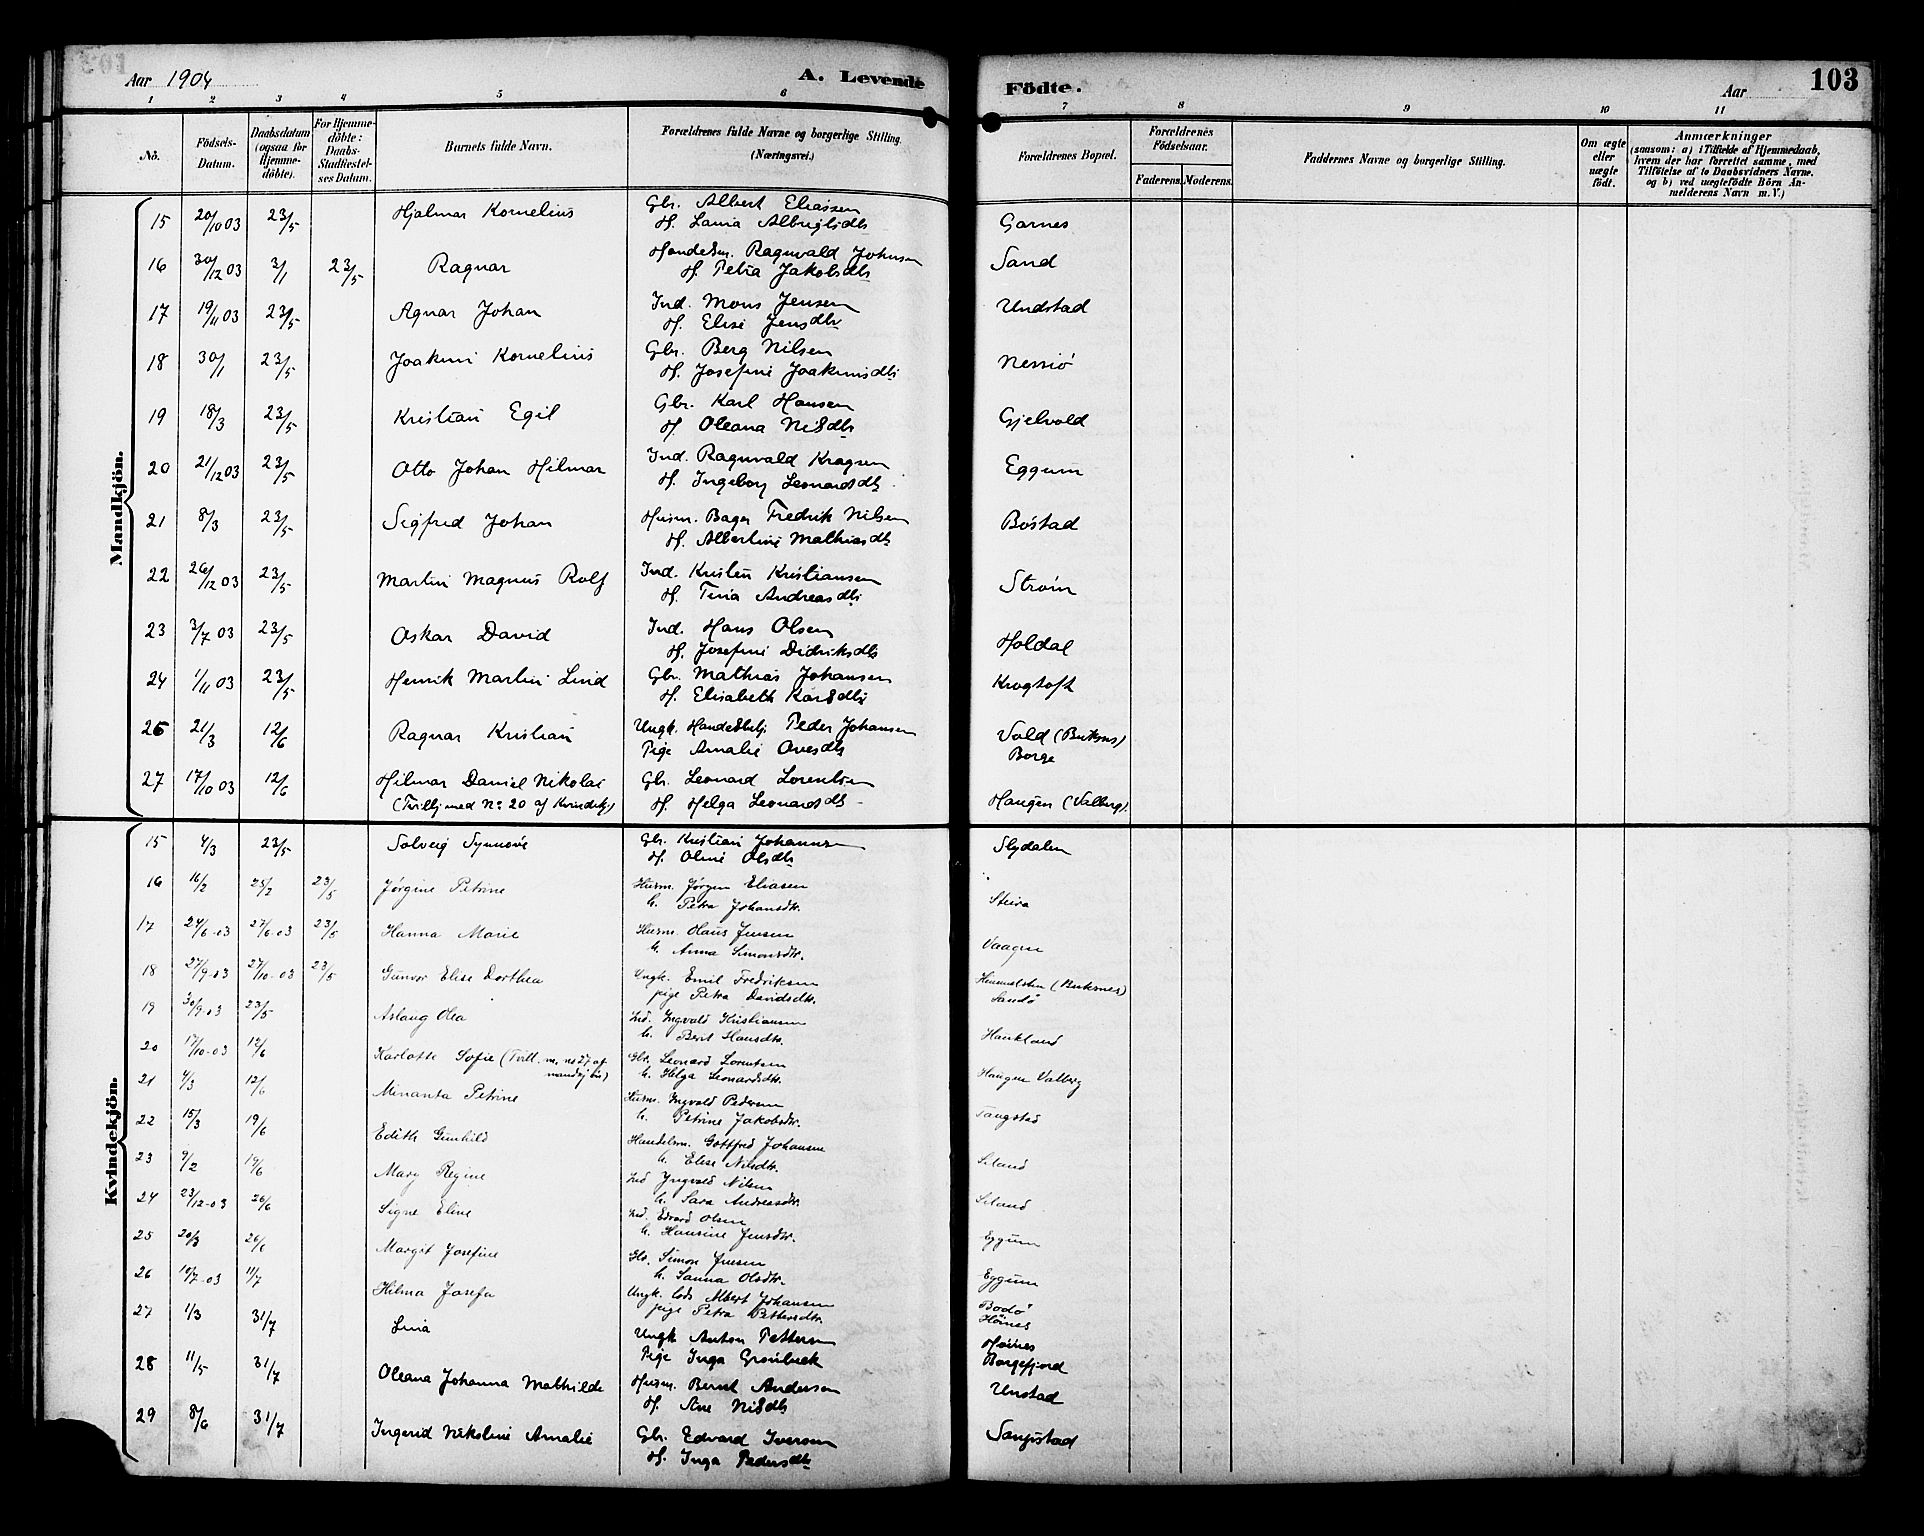 Aar 1904 A. Levende Fødte. Aar 103
1 2 3 4 5 6 7 8 9 10 11
No. Födsels-Datum. Daabsdatum (ogsaa for Hjemmedöbte). For Hjemmedöbte: Daabs-Stadfæstelses Datum. Barnets fulde Navn. Forældrenes fulde Navne og borgerlige Stilling. (Næringsvei.) Forældrenes Bopæl. Forældrenes Födselsaar. Faderens. Moderens. Faddernes Navne og borgerlige Stilling. Om ægte eller uægte födt. Anmærkninger (saasom: a) i Tilfælde af Hjemmedaab, hvem der har forrettet samme, med Tilföielse af to Daabsvidners Navne. og b) ved uægtefödte Börn Anmelderens Navn m. V.)
Mandkjön.
15 20/10 03 23/5 Hjalmar Kornelius Gbr. Albert Eliassen Garnes
H. Laura Albrigtsdtr
16 30/12 03 3/1 23/5 Ragnar Handelsm. Ragnvald Johnsen Sand
H. Petra Jakobsdtr
17 19/11 03 23/5 Agnar Johan Ind. Mons Jensen Undstad
H. Elise Jensdtr
18 30/1 23/5 Joakim Kornelius Gbr. Berg Nilsen Nessiö
H. Josefine Joakimsdtr
19 18/3 23/5 Kristian Egil Gbr. Karl Hansen Gjelvold
H. Oleana Nilsdtr
20 21/12 03 23/5 Otto Johan Hilmar Ind. Ragnvald Kragsen Eggum
H. Ingeborg Leonardsdtr
21 8/3 23/5 Sigfred Johan Husm. Bager Fredrik Nilsen Böstad
H. Albertine Mathiasdtr
22 26/12 03 23/5 Martin Magnus Rolf Ind. Kristen Kristiansen Ström
H. Tina Andreasdtr
23 3/7 03 23/5 Oskar David Ind. Hans Olsen Holdal
H. Josefine Didriksdtr
24 1/11 03 23/5 Henrik Martin Lind Gbr. Mathias Johansen Krogtoft
H. Elisabeth Karlsdtr
26 21/3 12/6 Ragnar Kristian Ungk. Handelsbetj Peder Johansen Vold (Buksnes)
Pige Amalie Ovesdtr Borge
27 17/10 03 12/6 Hilmar Daniel Nikolai Gbr. Leonard Lorentsen
(Tvill. med No 20 af Kvindekj) H. Helga Leonardsdtr Haugen (Valberg).
Kvindekjön.
15 4/3 23/5 Solveig Synnöve Gbr. Kristian Johannsen Slydalen
H. Oline Olsdtr
16 16/2 25/2 23/5 Jørgine Petrine Husm. Jørgen Eliasen Steira
h. Petra Johansdtr.
17 24/6-03 27/6-03 23/5 Hanna Marie Husm. Olaus Jensen Vaagen
h. Anna Simonsdtr.
18 27/9-03 27/10-03 23/5 Gunvor Elise Dorthea Ungk. Emil Fredriksen Himmelsten (Buksnes)
pige Petra Davidsdtr. Sandö
19 30/9-03 23/5 Aslaug Olea Ind. Ingvald Kristiansen Haukland
h. Berit Hansdtr.
20 17/10-03 12/6 Karlotte Sofie (Tvill. m. no 27 af Gbr. Leonard Lorentsen
mandkjön) h. Helga Leonardsdtr. Haugen Valberg
21 4/3 12/6 Minanta Petrine Husm. Ingvald Pedersen Tangstad
h. Petrine Jakobsdtr.
22 15/3 19/6 Edith Gunhild Handelsm. Gottfred Johansen Leland
h. Elise Nilsdtr.
23 9/2 19/6 Mary Regine Ind Yngvald Nilsen Leland
h. Sara Andreasdtr.
24 23/12-03 26/6 Signe Eline Ind. Edvard Olsen Eggum
h. Hansine Jensdtr.
25 20/3 26/6 Margit Josefine Gbr. Simon Jensen Eggum
h. Sanna Olsdtr.
26 10/7-03 11/7 Hilma Josefa Ungk. Lods Albert Johansen Bodö
pige Petra Pettersdtr. Höines
27 1/3 31/7 Lina Ungk Anton Pettersen Höines
Pige Inga Grönbeck Borgefjord
28 11/5 31/7 Oleana Johanna Mathilde Husm. Bernt Andersen Unstad
H. Ane Nilsdtr
29 8/6 31/7 Ingerid Nikoline Amalie Gbr. Edvard Iversen
H. Inga Pedersdtr